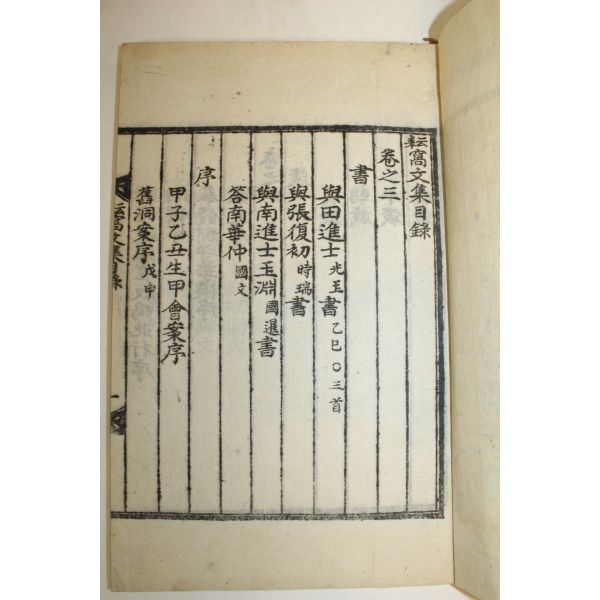 耘窩文集目錄
卷之三
書
與田進士光玉書乙巳○三首
與張復初時瑞書
與南進士玉淵國暹書
答南華仲國文
序
甲子乙丑生甲會案序
舊洞案序戊申
耘窩文集目錄
一